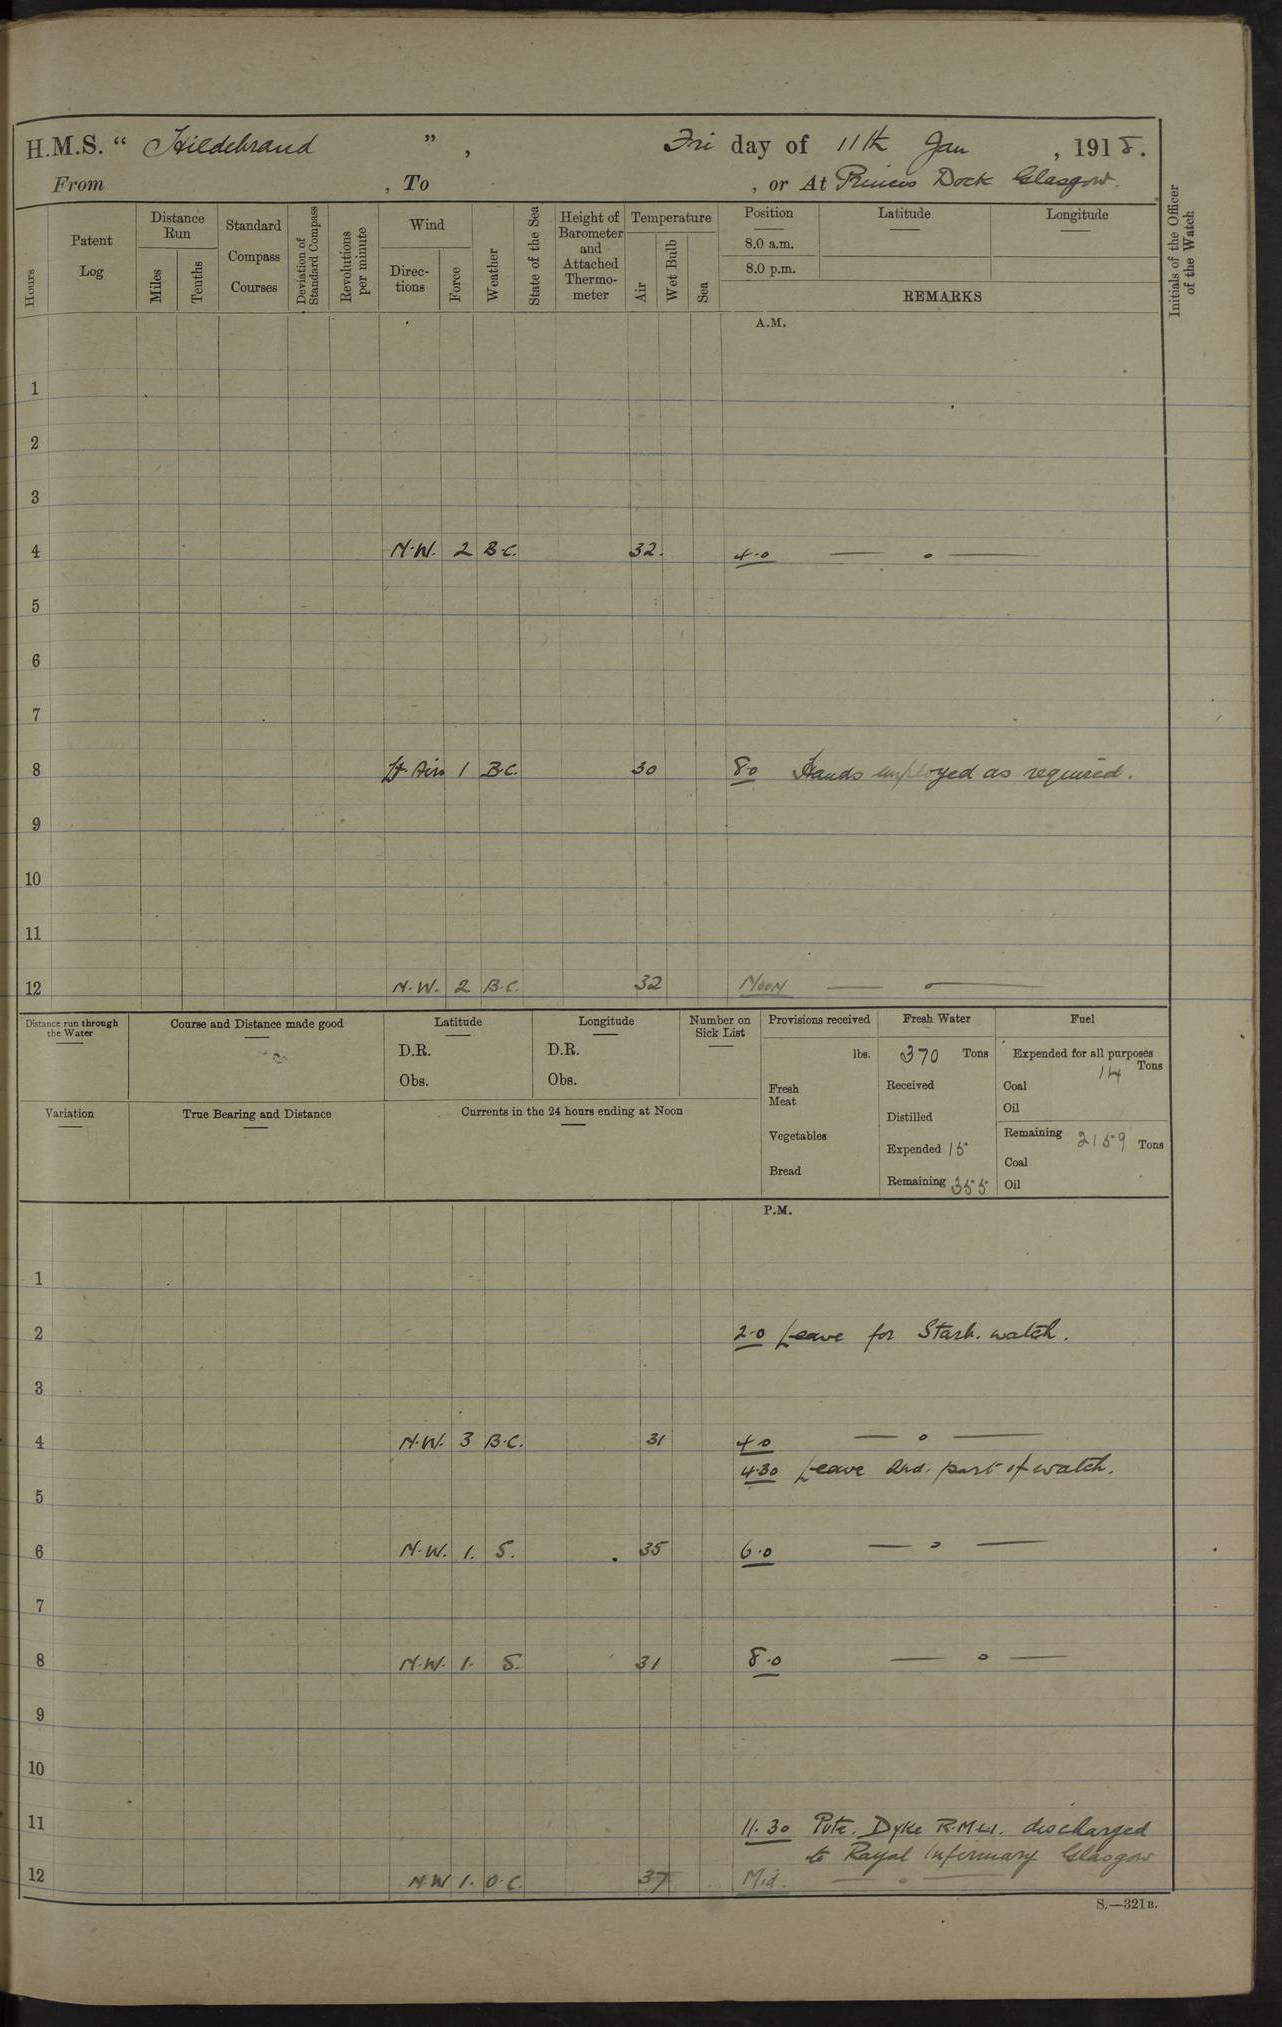 H.M.S. “ Hildebrand ” , Fri day of 11th Jan , 1918.
From , To , or At Princes Dock Glasgow.
Hours
Patent Log
Distance Run
Miles
Tenths
Standard Compass Courses
Deviation of Standard Compass
Revolutions per minute
Wind
Direc-tions
Force
Weather
State of the Sea
Height of Barometer and Attached Thermo-meter
Temperature
Air
Wet Bulb
Sea
Position
8.0 a.m.
8.0 p.m.
Latitude
Longitude
REMARKS
Initials of the Officer of the Watch
A.M.
1
2
3
4 N.W. 2 B.C. 32. 4.0 — o —
5
6
7
8 Lt Airs 1 B.C. 30 8.0 Hands employed as required.
9
10
11
12 N.W. 2 B.C. 32 Noon — o —
Distance run through the Water
Course and Distance made good
Latitude
D.R.
Obs.
Longitude
D.R.
Obs.
Number on Sick List
Provisions received
lbs.
Fresh Meat
Vegetables
Bread
Fresh Water
370 Tons
Received
Distilled
Expended 15
Remaining 355
Fuel
Expended for all purposes
14 Tons
Coal
Oil
Remaining 2159 Tons
Coal
Oil
Variation
True Bearing and Distance
Currents in the 24 hours ending at Noon
P.M.
1
2 2.0 Leave for Starb. watch.
3
4 N.W. 3 B.C. 31 4.0 — o —
4.30 Leave 2nd. part of watch.
5
6 N.W. 1. S. 35 6.0 — o —
7
8 N.W. 1. S. 31 8.0 — o —
9
10
11 11.30 Pvte. Dyke R.M.L.I. discharged
to Royal Infirmary Glasgow
12 N.W 1. O.C. 37 Mid. — o —
S.—321B.